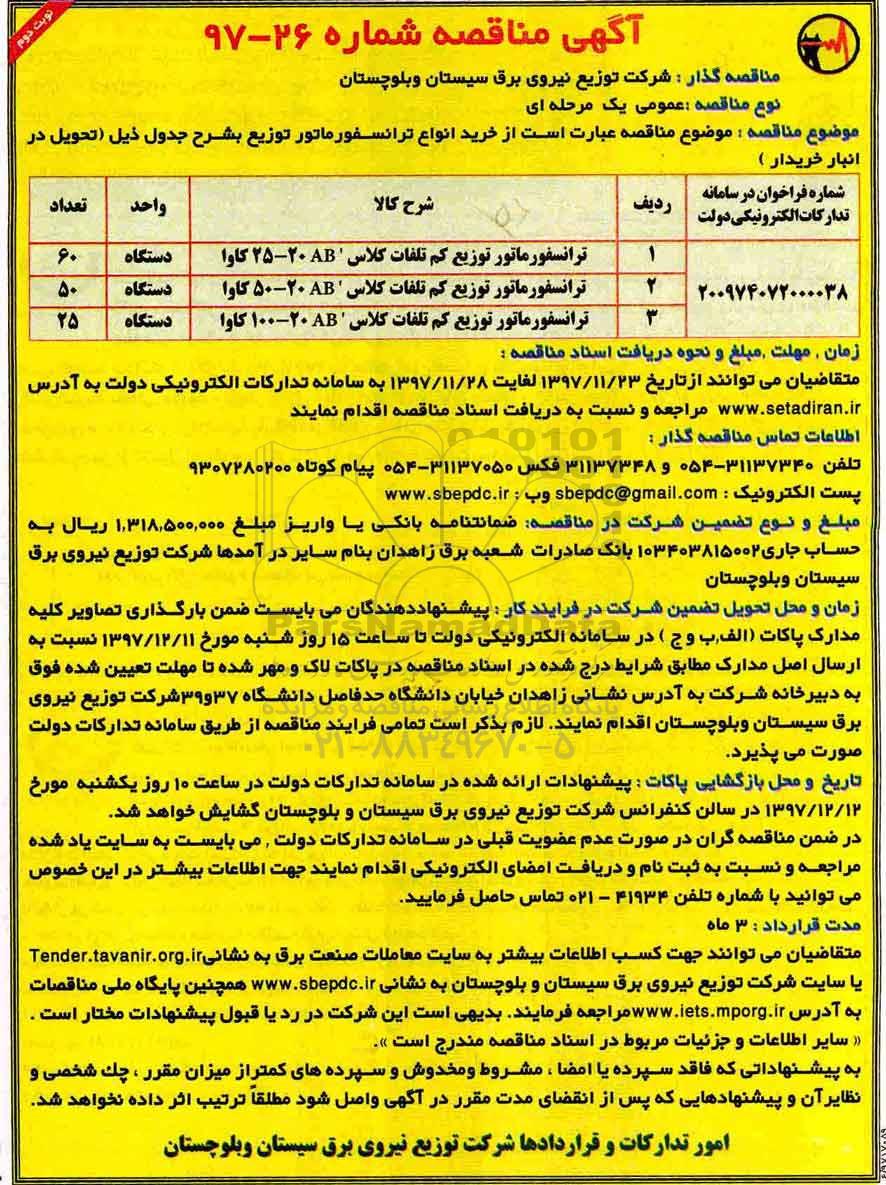 نوبت دوم
آگهی مناقصه شماره ۲۶-۹۷
مناقصه گذار : شرکت توزیع نیروی برق سیستان وبلوچستان
نوع مناقصه :عمومی یک مرحله ای
موضوع مناقصه : موضوع مناقصه عبارت است از خرید انواع ترانسفورماتور توزیع بشرح جدول ذیل (تحویل در
انبار خریدار )
شماره فراخوان در سامانه تدارکات الکترونیکی دولت ردیف شرح کالا واحد تعداد
۲۰۰۹۷۴۰۷۲۰۰۰۰۳۸
۱ ترانسفورماتور توزیع کم تلفات کلاس ' AB ۲۰-۲۵ کاوا دستگاه ۶۰
۲ ترانسفورماتور توزیع کم تلفات کلاس ' AB ۲۰-۵۰ کاوا دستگاه ۵۰
۳ ترانسفورماتور توزیع کم تلفات کلاس ' AB ۲۰-۱۰۰ کاوا دستگاه ۲۵
زمان , مهلت ,مبلغ و نحوه دریافت اسناد مناقصه :
متقاضیان می توانند ازتاریخ ۱۳۹۷/۱۱/۲۳ لغایت ۱۳۹۷/۱۱/۲۸ به سامانه تدارکات الکترونیکی دولت به آدرس
www.setadiran.ir مراجعه و نسبت به دریافت اسناد مناقصه اقدام نمایند
اطلاعات تماس مناقصه گذار :
تلفن ۳۱۱۳۷۳۴۰-۰۵۴ و ۳۱۱۳۷۳۴۸ فکس ۳۱۱۳۷۰۵۰-۰۵۴ پیام کوتاه ۹۳۰۷۲۸۰۲۰۰
پست الکترونیک : sbepdc@gmail.com وب : www.sbepdc.ir
مبلغ و نوع تضمین شرکت در مناقصه: ضمانتنامه بانکی یا واریز مبلغ ۱,۳۱۸,۵۰۰,۰۰۰ ریال به
حساب جاری۱۰۳۴۰۳۸۱۵۰۰۲ بانک صادرات شعبه برق زاهدان بنام سایر در آمدها شرکت توزیع نیروی برق
سیستان وبلوچستان
زمان و محل تحویل تضمین شرکت در فرایند کار : پیشنهاددهندگان می بایست ضمن بارگذاری تصاویر کلیه
مدارک پاکات (الف,ب و ج ) در سامانه الکترونیکی دولت تا ساعت ۱۵ روز شنبه مورخ ۱۳۹۷/۱۲/۱۱ نسبت به
ارسال اصل مدارک مطابق شرایط درج شده در اسناد مناقصه در پاکات لاک و مهر شده تا مهلت تعیین شده فوق
به دبیرخانه شرکت به آدرس نشانی زاهدان خیابان دانشگاه حدفاصل دانشگاه ۳۷و۳۹شرکت توزیع نیروی
برق سیستان وبلوچستان اقدام نمایند. لازم بذکر است تمامی فرایند مناقصه از طریق سامانه تدارکات دولت
صورت می پذیرد.
تاریخ و محل بازگشایی پاکات : پیشنهادات ارائه شده در سامانه تدارکات دولت در ساعت ۱۰ روز یکشنبه مورخ
۱۳۹۷/۱۲/۱۲ در سالن کنفرانس شرکت توزیع نیروی برق سیستان و بلوچستان گشایش خواهد شد.
در ضمن مناقصه گران در صورت عدم عضویت قبلی در سامانه تدارکات دولت , می بایست به سایت یاد شده
مراجعه و نسبت به ثبت نام و دریافت امضای الکترونیکی اقدام نمایند جهت اطلاعات بیشتر در این خصوص
می توانید با شماره تلفن ۴۱۹۳۴ - ۰۲۱ تماس حاصل فرمایید.
مدت قرارداد : ۳ ماه
متقاضیان می توانند جهت کسب اطلاعات بیشتر به سایت معاملات صنعت برق به نشانیTender.tavanir.org.ir
یا سایت شرکت توزیع نیروی برق سیستان و بلوچستان به نشانی www.sbepdc.ir همچنین پایگاه ملی مناقصات
به آدرس www.iets.mporg.irمراجعه فرمایند. بدیهی است این شرکت در رد یا قبول پیشنهادات مختار است .
« سایر اطلاعات و جزئیات مربوط در اسناد مناقصه مندرج است ».
به پیشنهاداتی که فاقد سپرده یا امضا ، مشروط ومخدوش و سپرده های کمتراز میزان مقرر ، چك شخصی و
نظایرآن و پیشنهادهایی که پس از انقضای مدت مقرر در آگهی واصل شود مطلقاً ترتیب اثر داده نخواهد شد.
امور تدارکات و قراردادها شرکت توزیع نیروی برق سیستان وبلوچستان
ParsNamadData
پایگاه اطلاع رسانی مناقصه و مزایده
۰۲۱-۸۸۳۴۹۶۷۰-۵